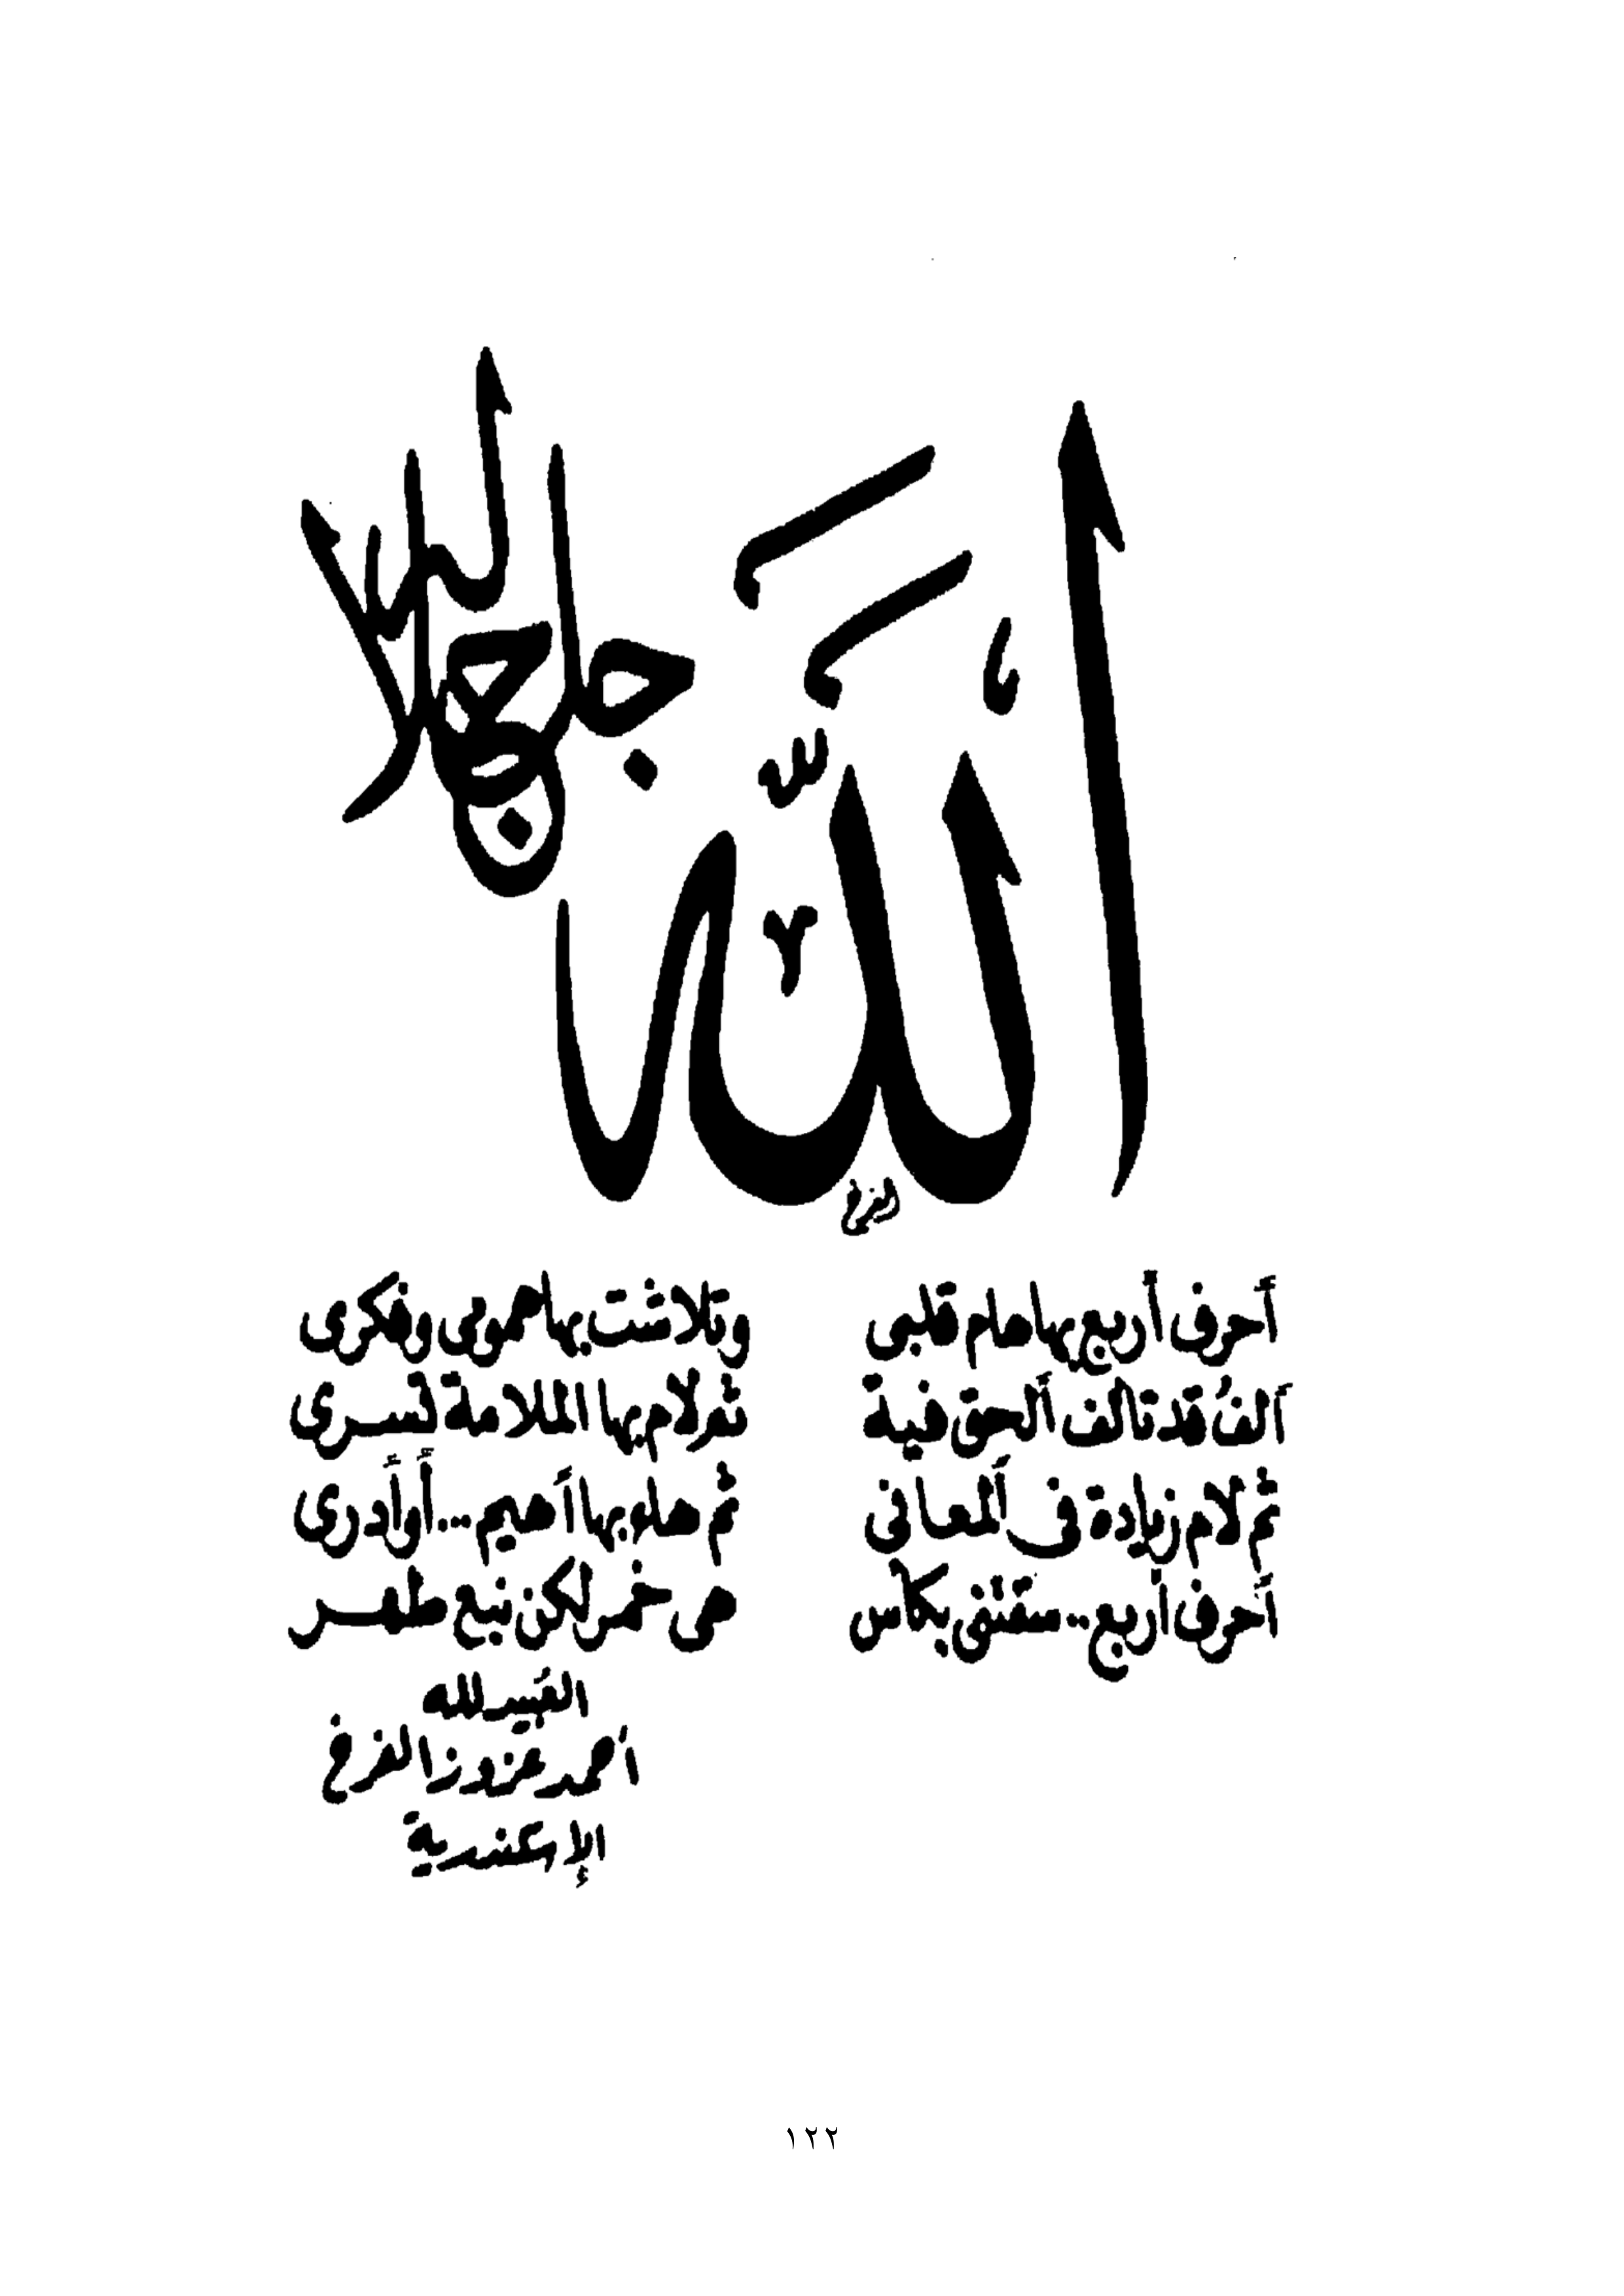 الله جل جلاله
أحرف أربع بها هام قلبى وتلاشت بها همومى وفكرى
ألف قد تألف الحق فيه ثم لام بها الملامة تسرى
ثم لام زيادة فى المعانى ثم هاء بها أهيم.. أأدرى
أحرف أربع.. سقتنى بكأس من خمر لكن فيه طهر
العبد لله
أحمد عزوز الفرخ
الإسكندرية
١٢٢